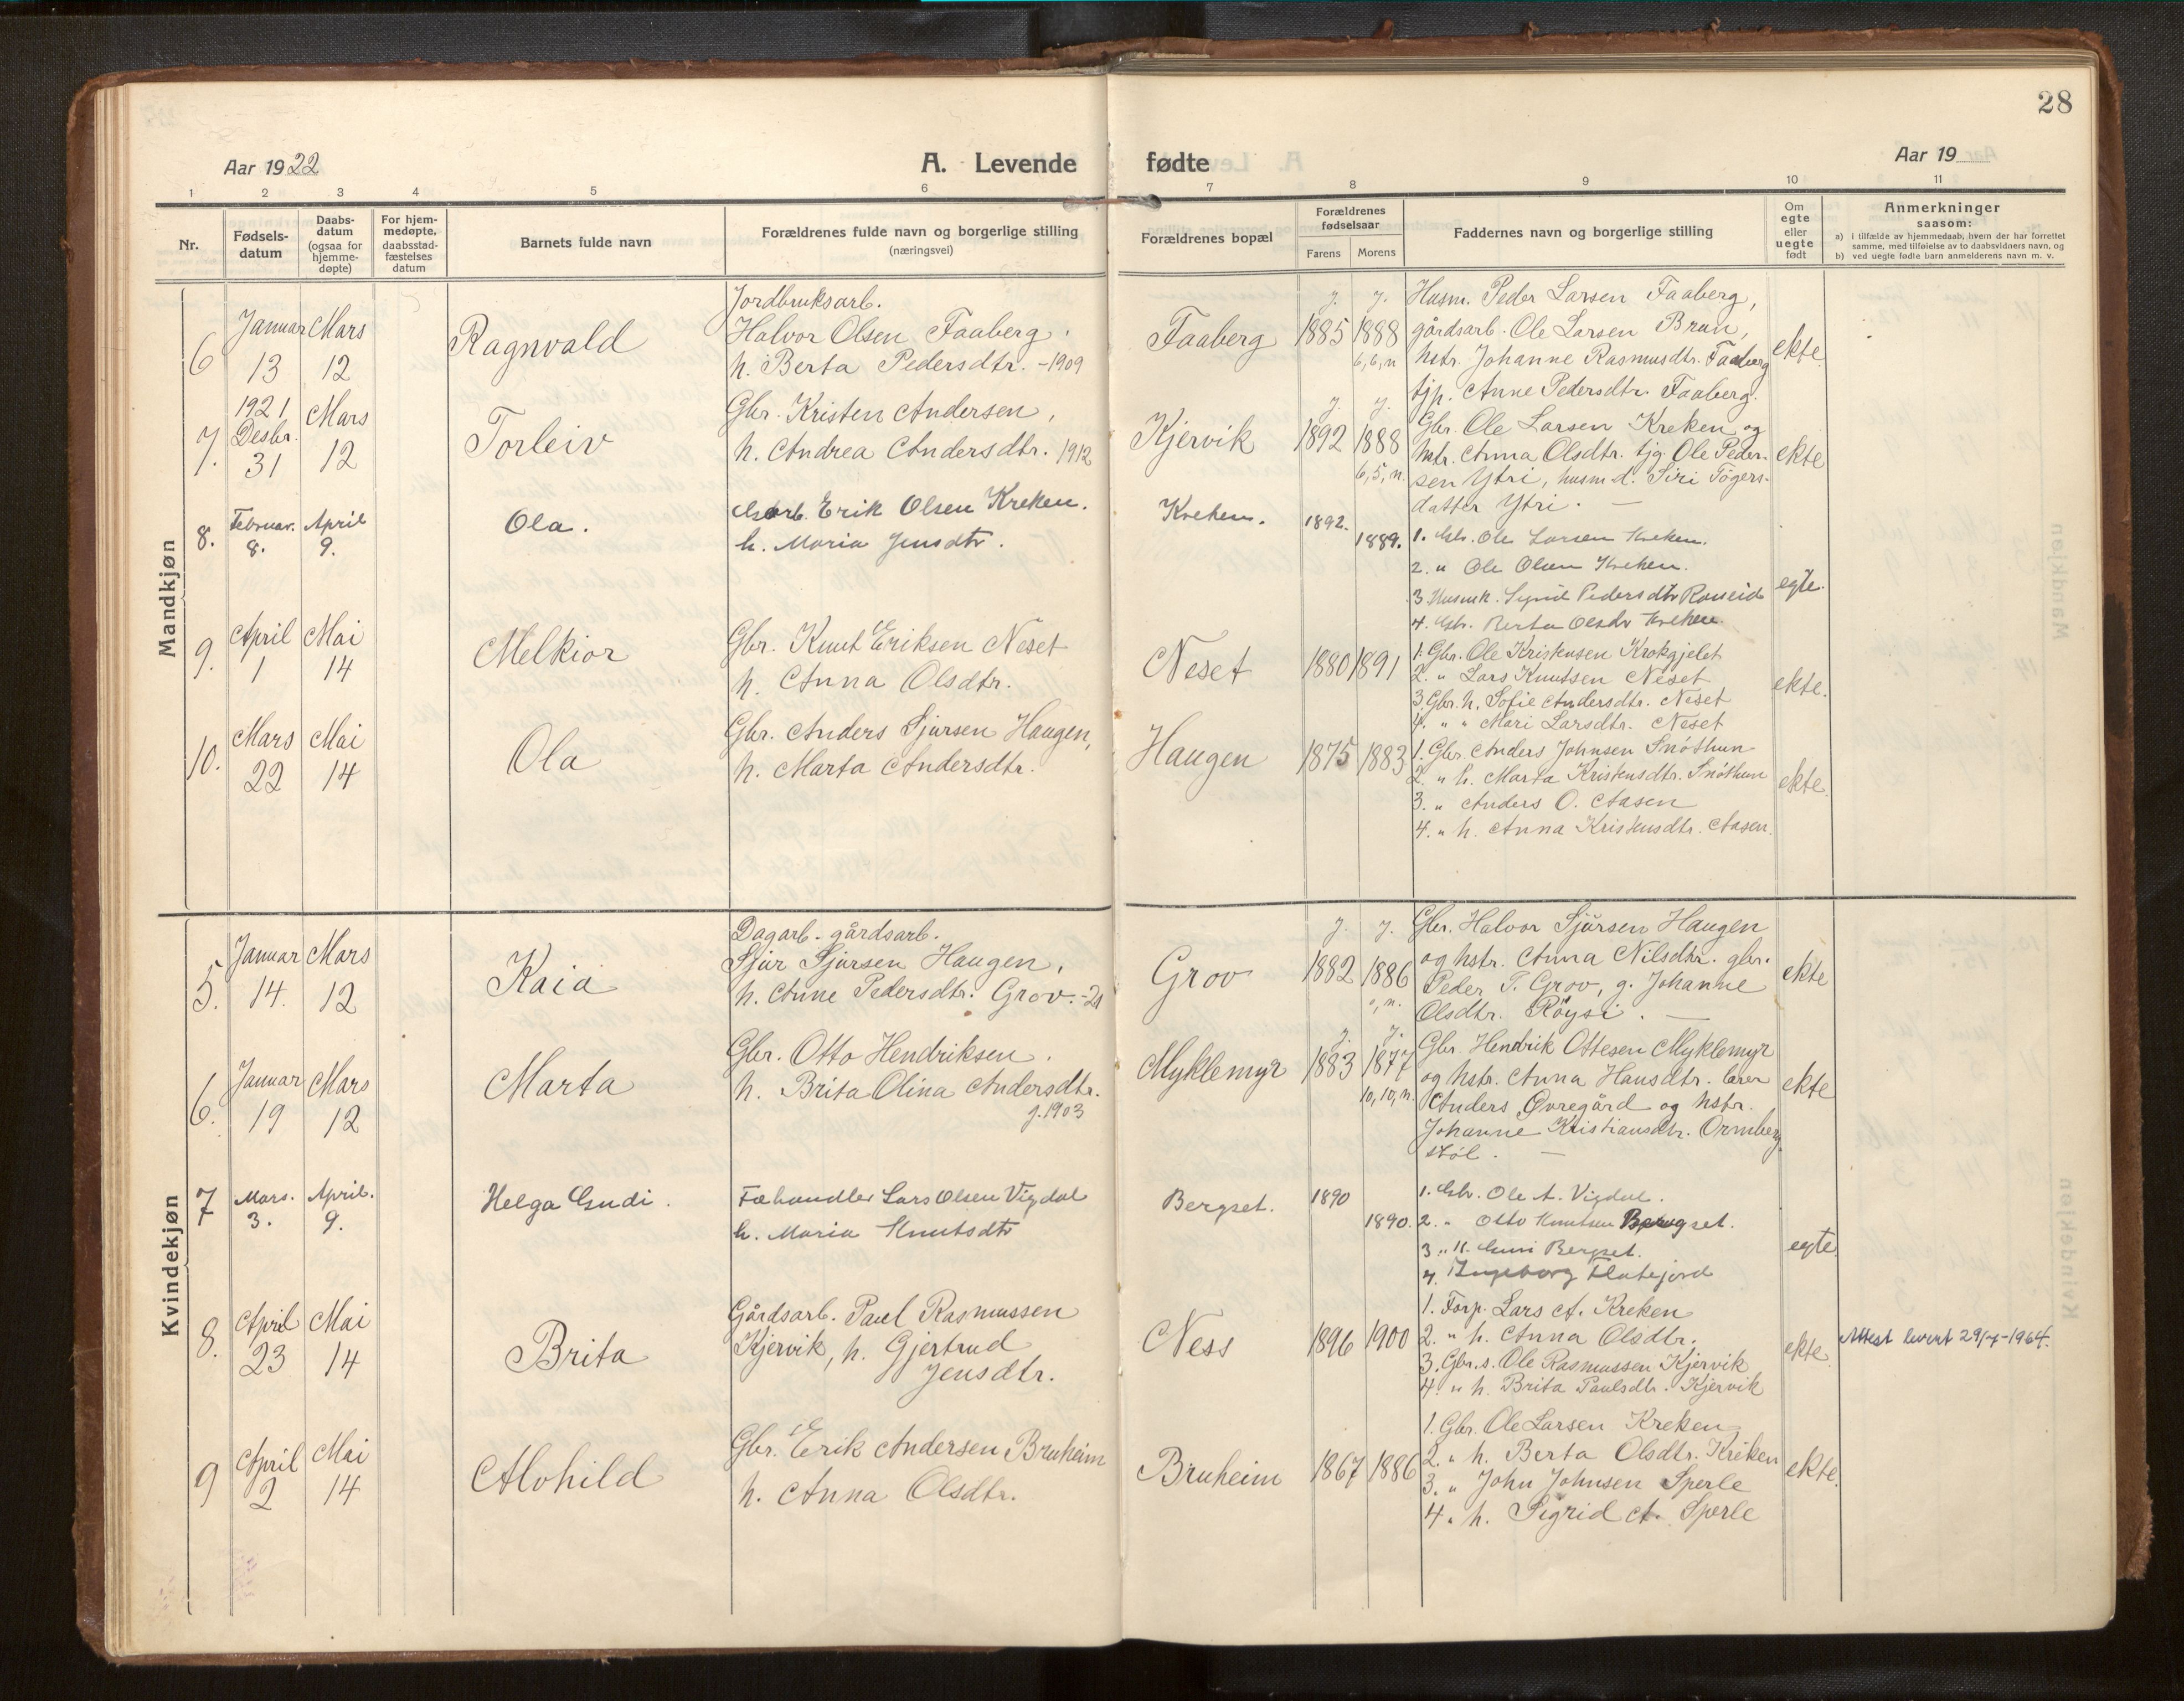 28
Aar 1922
A. Levende
fødte
Aar 19
1 2 3 4 5 6 7 8 9 10 11
Nr.
Fødsels-
datum
Daabs-
datum
(ogsaa for
hjemme-
døpte)
For hjem-
medøpte,
daabsstad-
fæstelses
datum
Barnets fulde navn
Forældrenes fulde navn og borgerlige stilling
(næringsvei)
Forældrenes bopæl
Forældrenes
fødselsaar
Farens Morens
Faddernes navn og borgerlige stilling
Om
egte
eller
uegte
født
Anmerkninger
saasom:
a) i tilfælde av hjemmedaab, hvem der har forrettet
samme, med tilføielse av to daabsvidners navn, og
b) ved uegte fødte barn anmelderens navn m. v.
Mandkjøn
6
Januar
13
Mars
12
Ragnvald
Jordbruksarb.
Halvor Olsen Faaberg,
h. Berta Pedersdtr. -1909
Faaberg
j. j.
1885 1888
6, 6, n
Husm. Peder Larsen Faaberg,
gårdsarb. Ole Larsen Brun,
hstr. Johanne Rasmusdtr. Faaberg
tjp. Anne Pedersdtr. Faaberg.
ekte.
7.
1921
Desbr.
31
Mars
12
Torleiv
Gbr. Kristen Andersen,
h. Andrea Andersdtr. 1912
Kjervik
j. j.
1892 1888
6, 5, n.
Gbr. Ole Larsen Kreken og
hstr. Anna Olsdtr. tjg. Ole Peder-
sen Ytri, husm.d. Siri Tögers-
datter Ytri. —
ekte
8.
Februar.
8.
April
9.
Ola.
Erik Olsen Kreken.
h. Maria Jensdtr.
Kreken.
1892.
1889.
1. Gbr. Ole Larsen Kreken.
2. " Ole Olsen Kreken.
3. Husmk. Sigrid Pedersdtr Roneid
4. Gbr. Berta Olsdtr Kreken.
egte.
9.
April
1
Mai
14
Melkior
Gbr. Knut Eriksen Neset
h. Anna Olsdtr.
Neset
1880 1891
1. Gbr. Ole Kristensen Krokgjelet
2. " Lars Knutsen Neset
3. Gbr. h. Sofie Andersdtr. Neset
4. " " Mari Larsdtr. Neset
ekte.
10.
Mars
22
Mai
14
Ola
Gbr. Anders Sjursen Haugen,
h. Marta Andersdtr.
Haugen
1875 1883
1. Gbr. Anders Johnsen Snöthun
2. " h. Marta Kristensdtr. Snöthun
3. " Anders O. Aasen
4. " h. Anna Kristensdtr. Aasen.
ekte.
Kvindekjøn
5.
Januar
14.
Mars
12
Kaia
Dagarb. gårdsarb.
Sjur Sjursen Haugen,
h. Anne Pedersdtr. Grov. -21
Grov
j. j.
1882 1886
0, n.
Gbr. Halvor Sjursen Haugen
og hstr. Anna Nilsdtr. gbr.
Peder T. Grov, g. Johanne
Olsdtr. Röysi. —
ekte
6.
Januar
19
Mars
12
Marta
Gbr. Otto Hendriksen.
h. Brita Olina Andersdtr.
j. 1903
Myklemyr
j. j.
1883 1877
10, 10, n.
Gbr. Hendrik Ottesen Myklemyr
og hstr. Anna Hansdtr. lærer
Anders Øvregård og hstr.
Johanne Kristiansdtr. Ormberg
stöl. —
ekte
7
Mars.
3.
April.
9.
Helga Gudi.
Fæhandler Lars Olsen Vigdal
h. Maria Knutsdtr
Bergset.
1890
1890.
1. Gbr. Ole A. Vigdal.
2. " Otto Knutsen Bergset.
3. " H. Guri Bergset.
4. Ingeborg Flatejord
egte.
8.
April
23
Mai
14
Brita
Gårdsarb. Paul Rasmussen
Kjervik, h. Gjertrud
Jensdtr.
Ness
1896 1900
1. Forp. Lars A. Kreken
2. " h. Anna Olsdtr.
3. Gbr. s. Ole Rasmussen Kjervik
4. " h. Brita Paulsdtr. Kjervik
ekte.
Attest levert 29/4-1964.
9
April
2
Mai
14
Alvhild
Gbr. Erik Andersen Bruheim
h. Anna Olsdtr.
Bruheim
1867 1886
1. Gbr. Ole Larsen Kreken
2. " h. Berta Olsdtr. Kreken
3. " John Johnsen Sperle
4. " h. Sigrid A. Sperle
ekte.